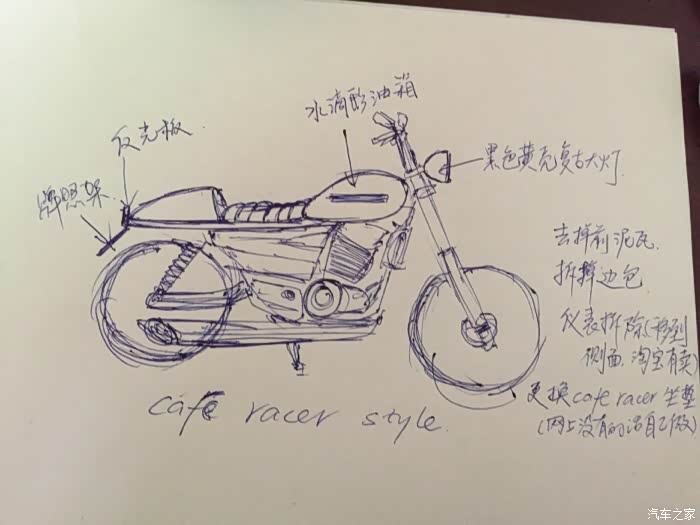 水滴形油箱
反光板
黑色黄壳复古大灯
牌照架
去掉前泥瓦
拆掉边包
仪表拆除(移到
侧面,淘宝有卖)
更换cafe racer坐垫
(网上没有的话自己做)
cafe racer style
汽车之家